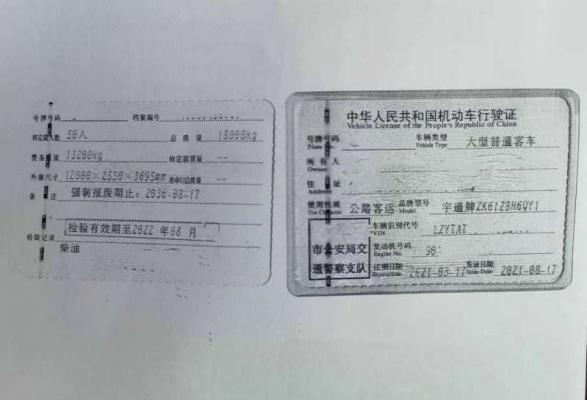 号牌号码 档案编号
核定载人数 50人 总质量 18000kg
整备质量 13200kg 核定载质量 --
外廓尺寸 12000×2550×3695mm 准牵引总质量 --
备注 强制报废期止:2036-08-17
检验有效期至2022年08月
检验记录
柴油
中华人民共和国机动车行驶证
Vehicle License of the People's Republic of China
号牌号码 车辆类型 大型普通客车
Vehicle Type
所有人
Owner
住址
Address
使用性质 公路客运 品牌型号 宇通牌ZK6128H6QY1
Use Character Model
车辆识别代号
VIN LZYTAT
市公安局交
通警察支队
发动机号码
Engine No.
注册日期 2021-08-17 发证日期 2021-08-17
Issue Date